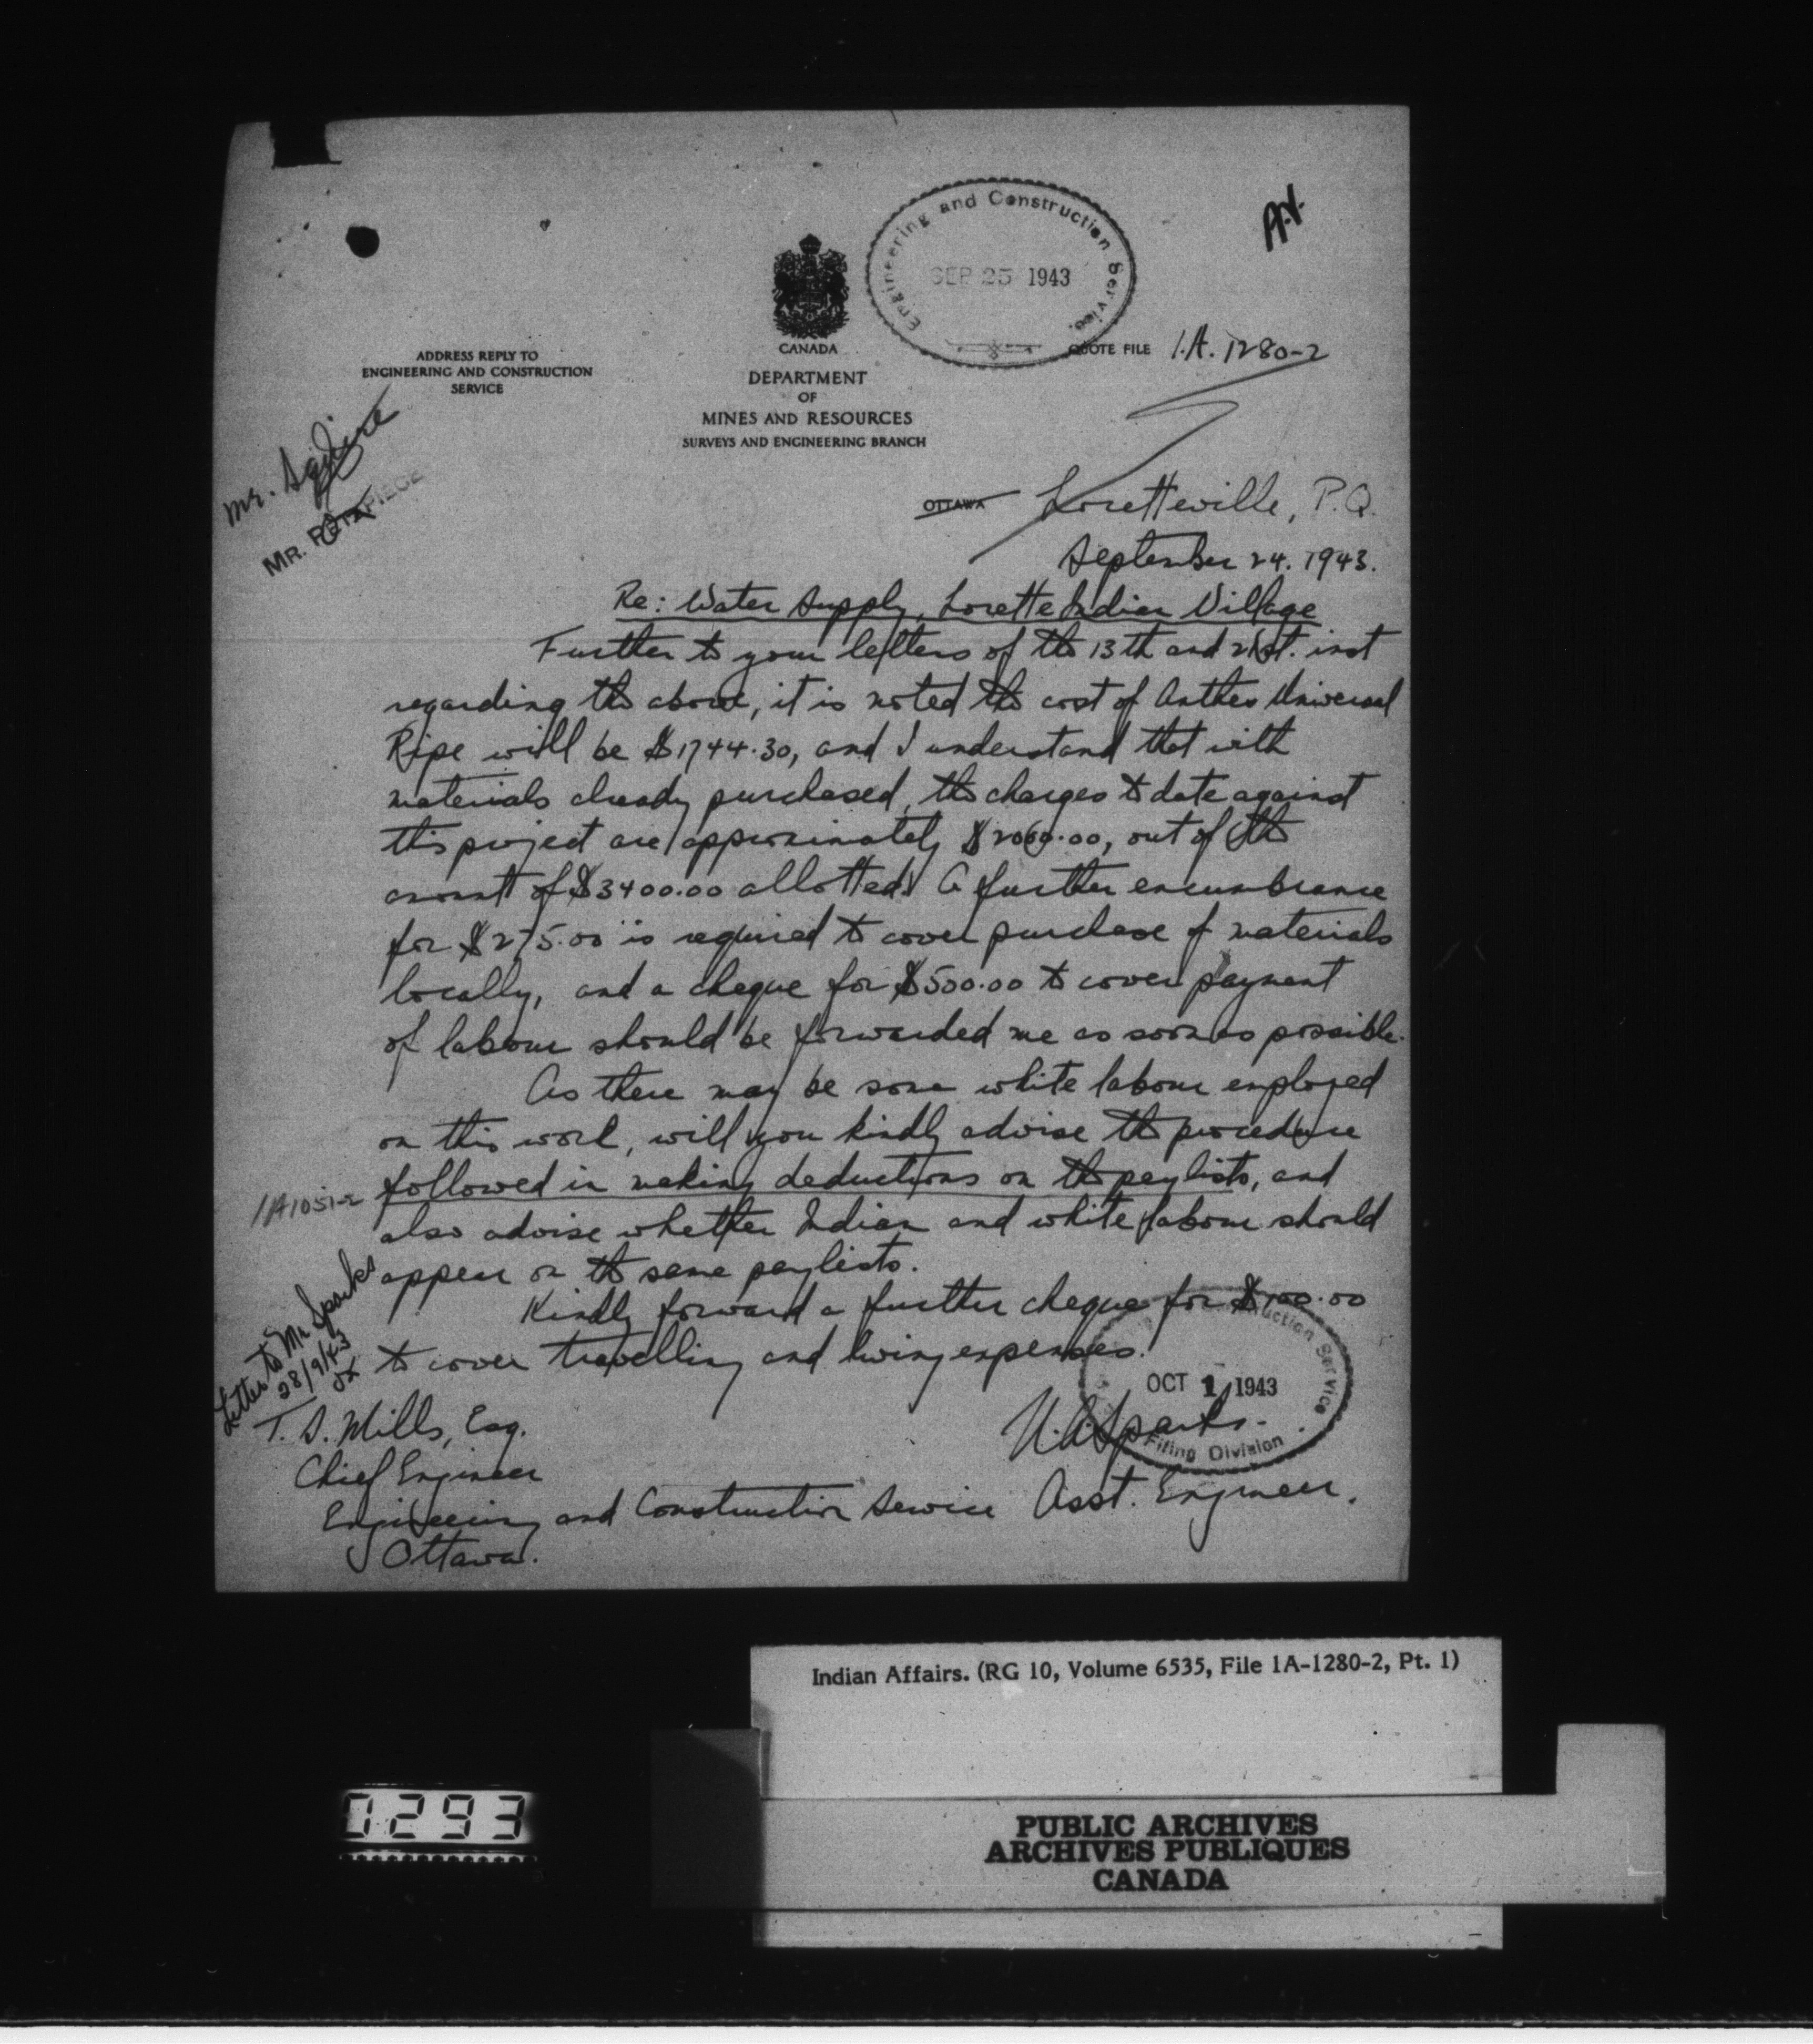 Engineering and Construction Service.
SEP 25 1943
P.A.
CANADA
QUOTE FILE 1.A. 1280-2
ADDRESS REPLY TO
ENGINEERING AND CONSTRUCTION
SERVICE
DEPARTMENT
OF
MINES AND RESOURCES
SURVEYS AND ENGINEERING BRANCH
Mr.
MR.
OTTAWA Loretteville, P.Q.
September 24. 1943.
Re: Water Supply, Lorette Indian Village
Further to your letters of the 13th and 21st. inst
regarding the above, it is noted the cost of Anthes Universal
Pipe will be $1744.30, and I understand that with
materials already purchased, the charges to date against
this project are approximately $2060.00, out of the
amount of $3400.00 allotted. A further encumbrance
for $275.00 is required to cover purchase of materials
locally, and a cheque for $500.00 to cover payment
of labour should be forwarded me as soon as possible.
As there may be some white labour employed
on this work, will you kindly advise the procedure
1A1051-2 followed in making deductions on the paylists, and
also advise whether Indian and white labour should
appear on the same paylists.
Kindly forward a further cheque for $100.00
to cover travelling and living expenses.
Letter to Mr Sparks
28/9/43
uction Service
OCT 1 1943
Filing Division
T. S. Mills, Esq.
Sparks.
Chief Engineer
Engineering and Construction Service Asst. Engineer.
Ottawa.
Indian Affairs. (RG 10, Volume 6535, File 1A-1280-2, Pt. 1)
0293
PUBLIC ARCHIVES
ARCHIVES PUBLIQUES
CANADA